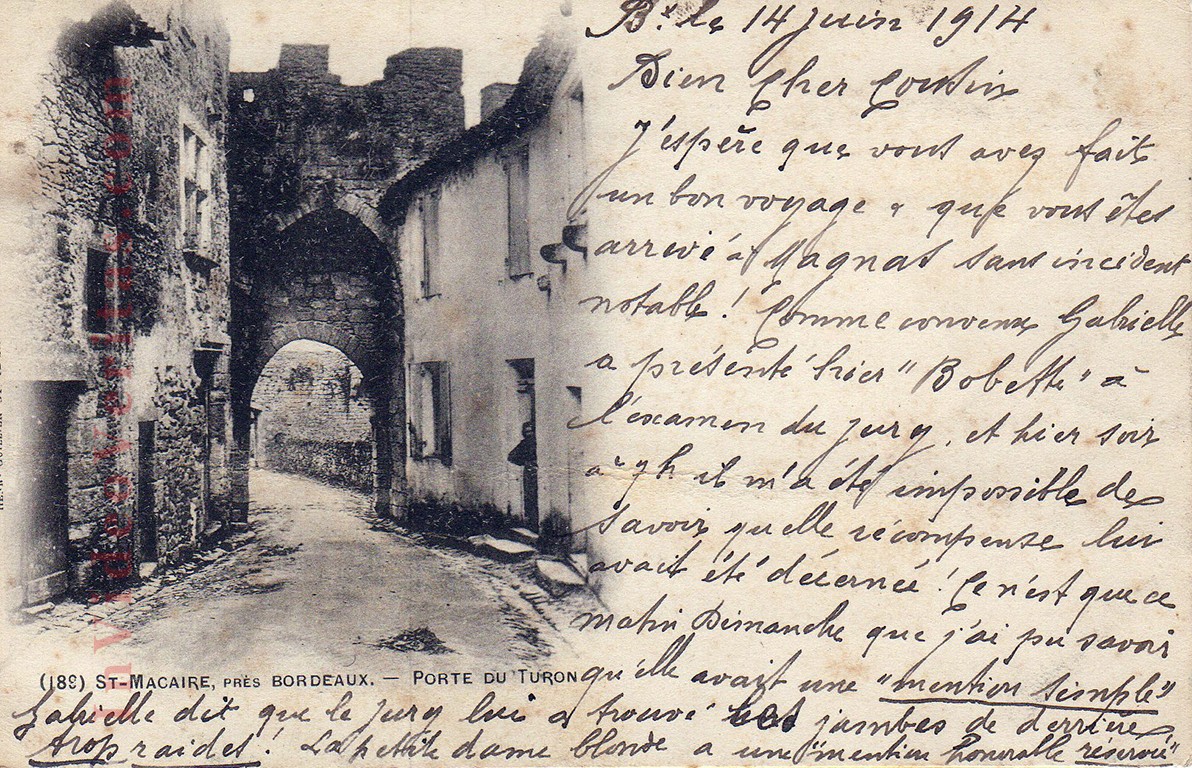 Bx. le 14 juin 1914
Bien Cher Cousin
J'espère que vous avez fait
un bon voyage & que vous êtes
arrivé à Magnas sans incident
notable! Comme convenu Gabrielle
a présenté hier "Bobette" à
l'examen du jury, et hier soir
à 7h il m'a été impossible de
savoir quelle récompense lui
avait été décernée! Ce n'est que ce
matin Dimanche que j'ai pu savoir
qu'elle avait une "mention simple"
(189) ST-MACAIRE, PRÈS BORDEAUX. — PORTE DU TURON
Gabrielle dit que le jury lui a trouvé les jambes de derrière
trop raides! La petite dame blonde a une "mention honorable réservée"